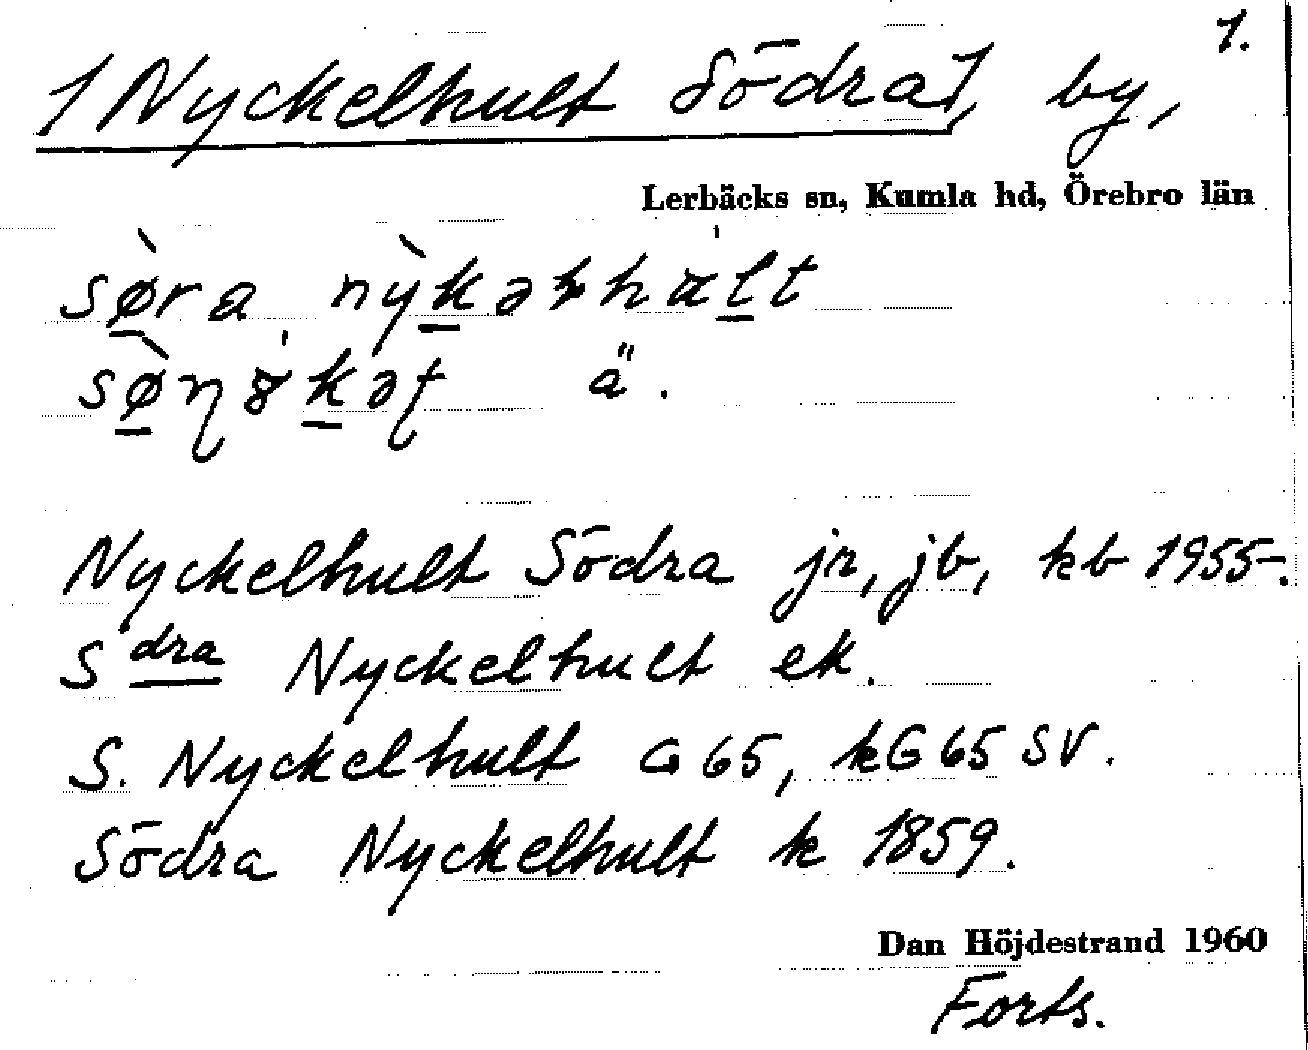 1.
1 Nyckelhult Södra 1, by,
Lerbäcks sn, Kumla hd, Örebro län
ä.
Nyckelhult Södra jr, jb, kb 1955-.
S dra Nyckelhult ek.
S. Nyckelhult G 65, kG 65 SV.
Södra Nyckelhult k 1859.
Dan Höjdestrand 1960
Forts.